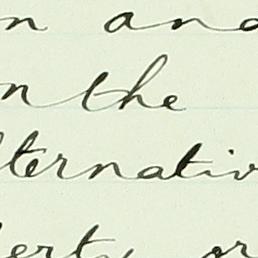 n and
n the
lternativ
erty or